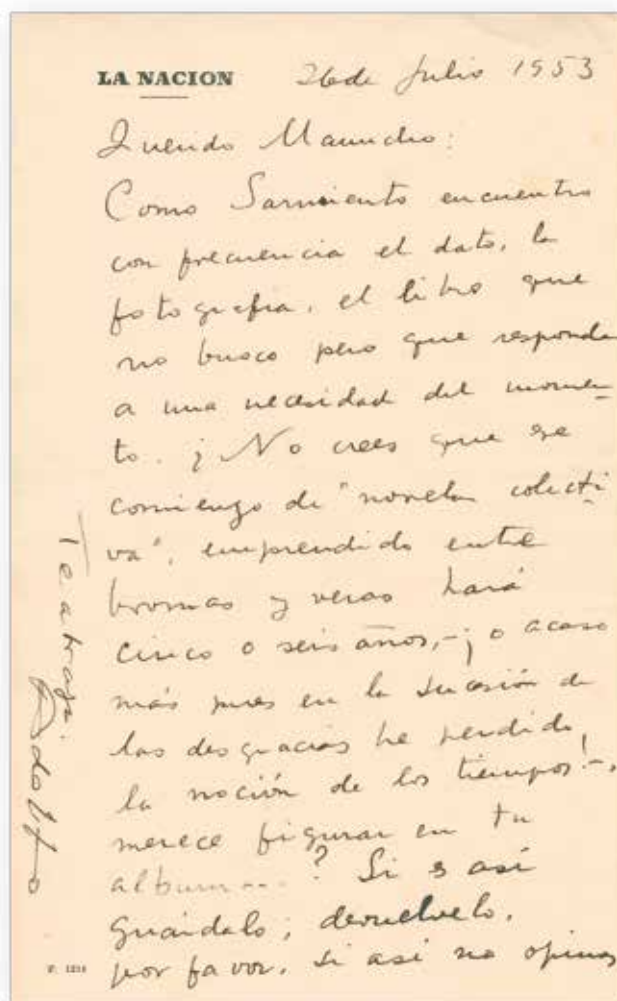 LA NACION
26 de Julio 1953
Querido Manucho:
Como Sarmiento encuentro
con frecuencia el dato, la
fotografia, el libro que
no busco pero que responde
a una necesidad del momen-
to. ¿No crees que ese
comienzo de "novela colecti-
va", emprendido entre
bromas y veras hará
cinco o seis años, -¡o acaso
más pues en la sucesión de
las desgracias he perdido
la noción de los tiempos!-,
merece figurar en tu
album....? Si es así
guárdalo; devuelvelo,
por favor, si así no opinas
Te abraza
Adolfo
F. 1214